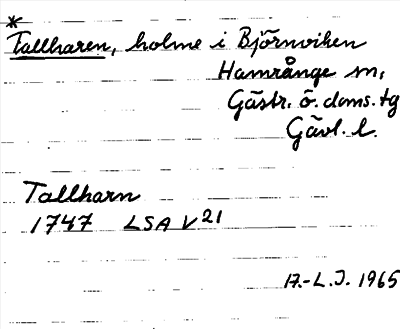 *
Tallharen, holme i Björnviken
Hamrånge sn,
Gästr. ö. doms. tg
Gävl. l.
Tallharn
1747 LSA V21
17.-L.J. 1965